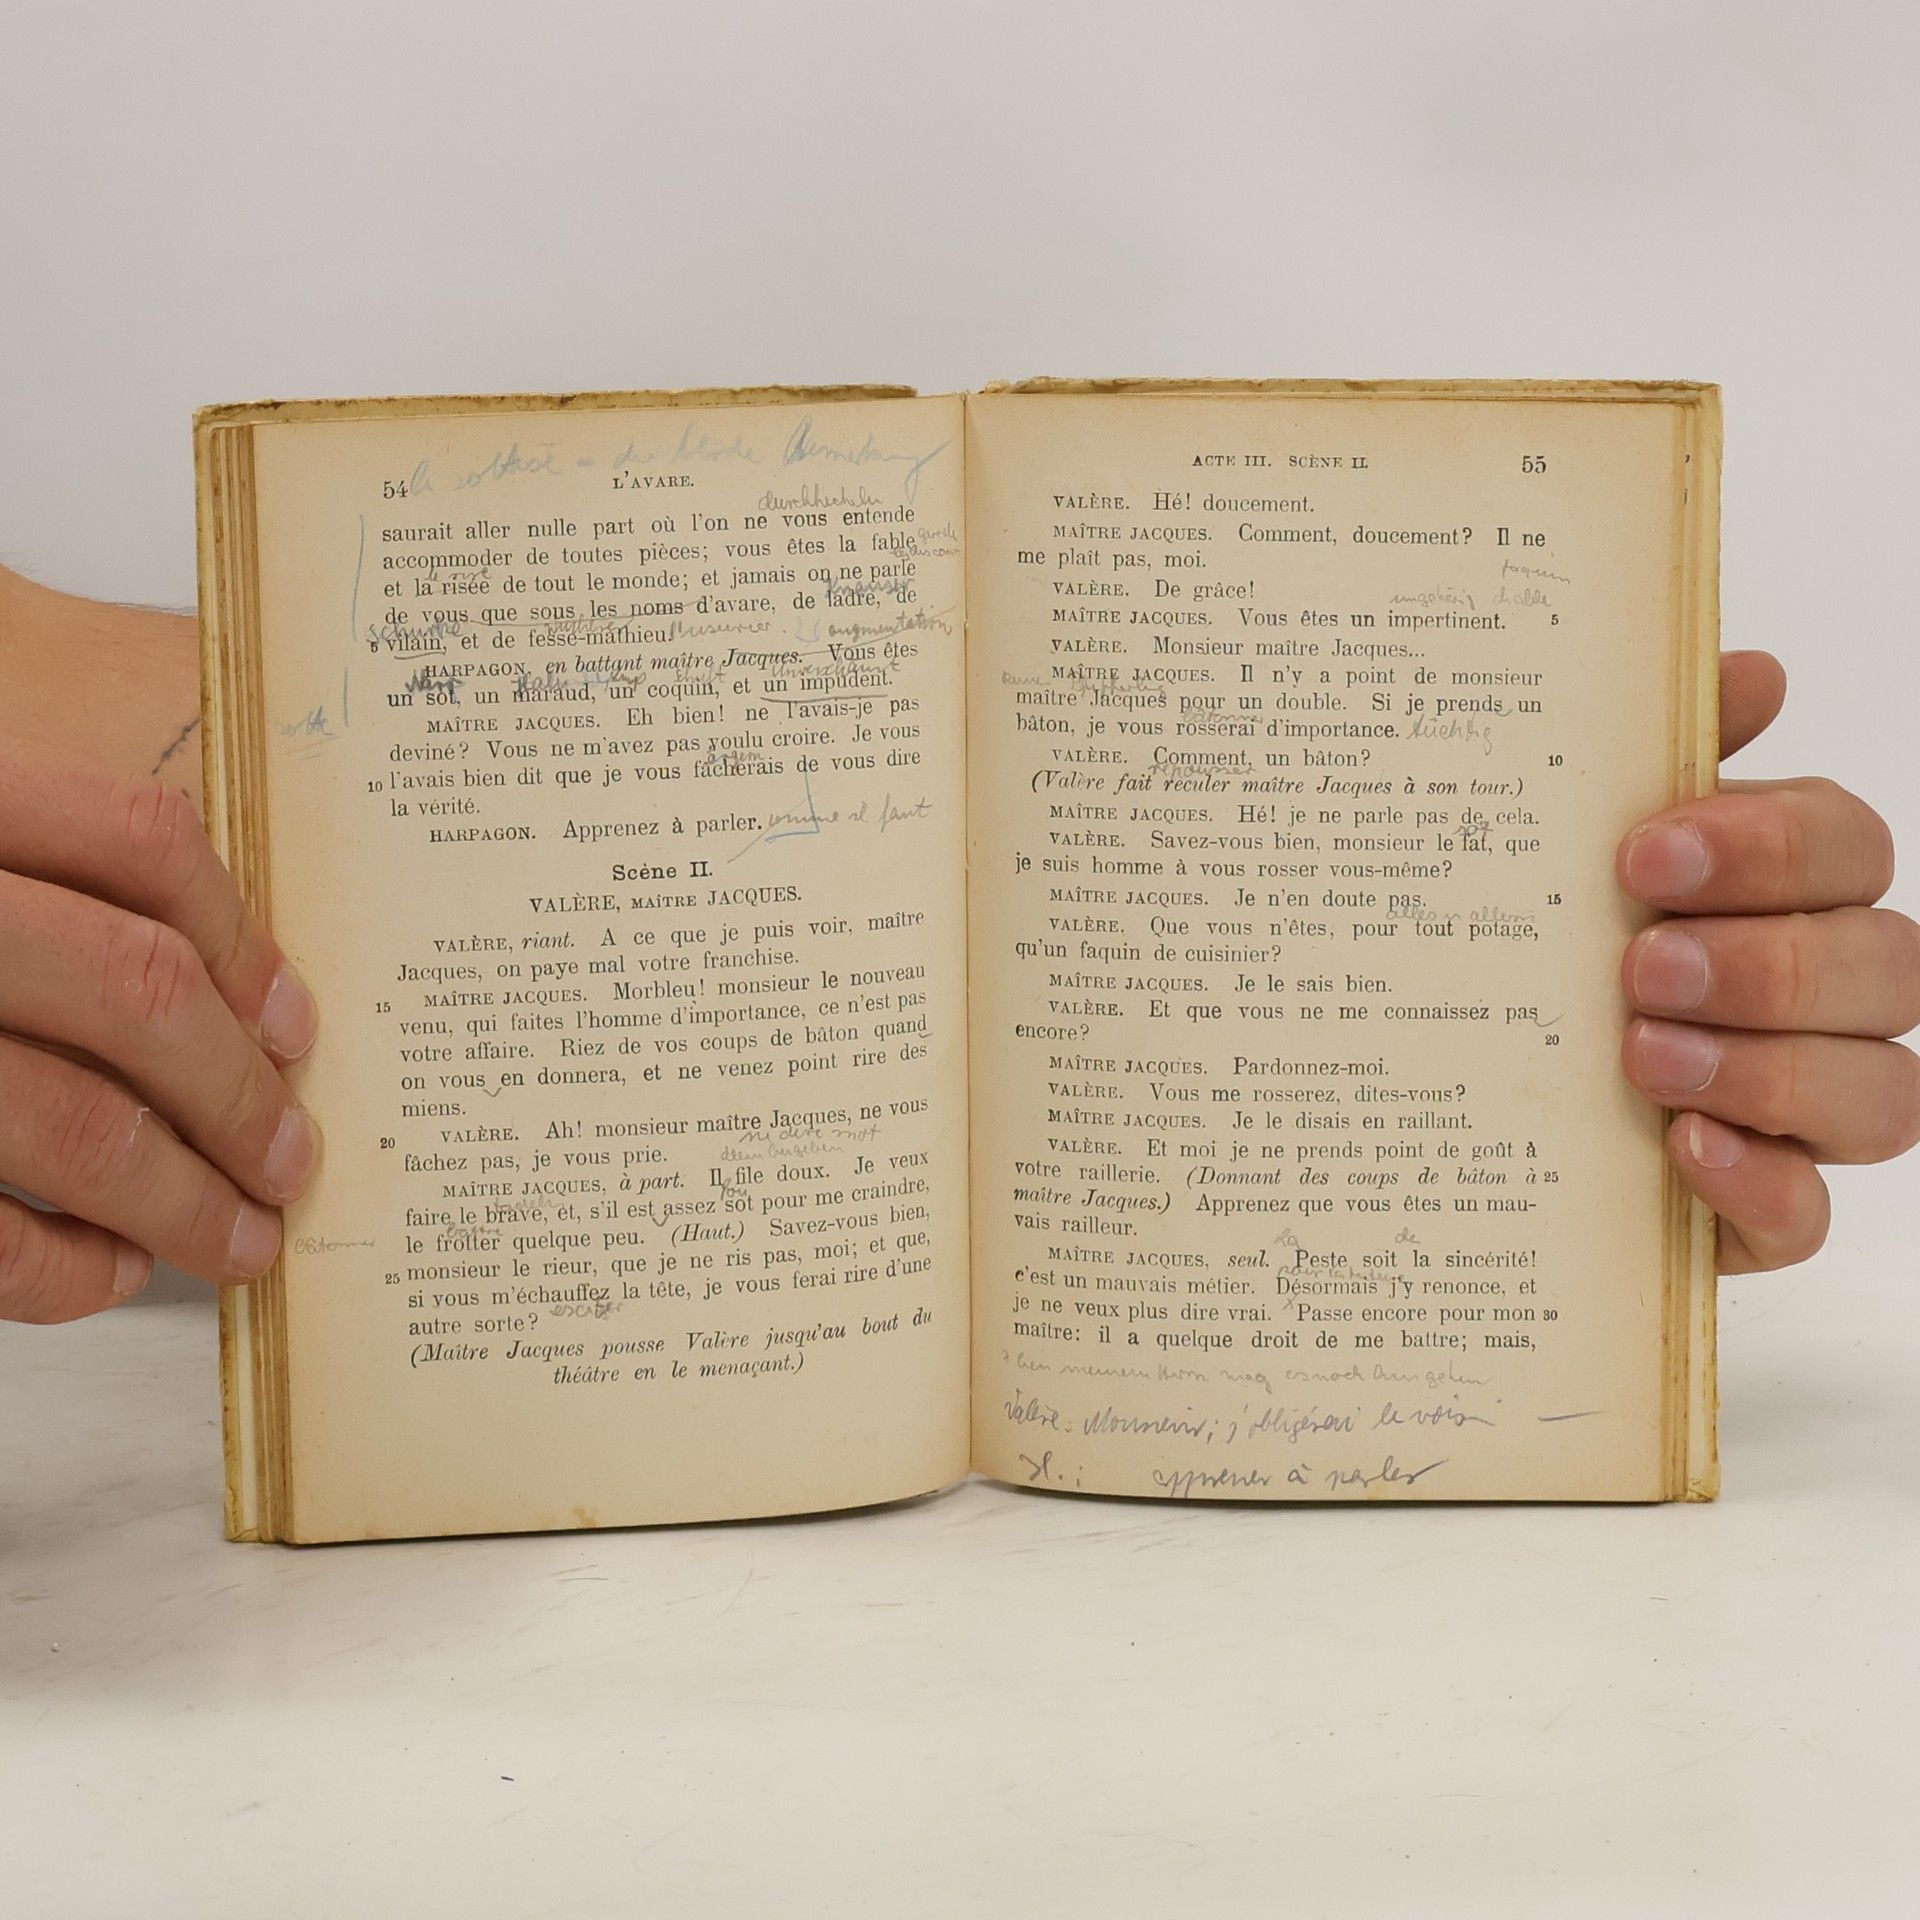 54
L'AVARE.
durchhecheln
saurait aller nulle part où l'on ne vous entende
accommoder de toutes pièces; vous êtes la fable
et la risée de tout le monde; et jamais on ne parle
de vous que sous les noms d'avare, de ladre, de
5 vilain, et de fesse-mathieu. l'usurier augmentation
HARPAGON, en battant maître Jacques. Vous êtes
un sot, un maraud, un coquin, et un impudent.
MAÎTRE JACQUES. Eh bien! ne l'avais-je pas
deviné? Vous ne m'avez pas voulu croire. Je vous
10 l'avais bien dit que je vous fâcherais de vous dire
la vérité.
HARPAGON. Apprenez à parler. comme il faut
Scène II.
VALÈRE, MAÎTRE JACQUES.
VALÈRE, riant. A ce que je puis voir, maître
Jacques, on paye mal votre franchise.
15 MAÎTRE JACQUES. Morbleu! monsieur le nouveau
venu, qui faites l'homme d'importance, ce n'est pas
votre affaire. Riez de vos coups de bâton quand
on vous en donnera, et ne venez point rire des
miens.
20 VALÈRE. Ah! monsieur maître Jacques, ne vous
ne dire mot
fâchez pas, je vous prie.
MAÎTRE JACQUES, à part. Il file doux. Je veux
fou
faire le brave, et, s'il est assez sot pour me craindre,
battre
le frotter quelque peu. (Haut.) Savez-vous bien,
25 monsieur le rieur, que je ne ris pas, moi; et que,
si vous m'échauffez la tête, je vous ferai rire d'une
autre sorte? exciter
(Maître Jacques pousse Valère jusqu'au bout du
théâtre en le menaçant.)
ACTE III. SCÈNE II.
55
VALÈRE. Hé! doucement.
MAÎTRE JACQUES. Comment, doucement? Il ne
me plaît pas, moi.
VALÈRE. De grâce!
MAÎTRE JACQUES. Vous êtes un impertinent. 5
VALÈRE. Monsieur maître Jacques...
MAÎTRE JACQUES. Il n'y a point de monsieur
maître Jacques pour un double. Si je prends un
bâtonner
bâton, je vous rosserai d'importance. tüchtig
VALÈRE. Comment, un bâton? 10
repousser
(Valère fait reculer maître Jacques à son tour.)
MAÎTRE JACQUES. Hé! je ne parle pas de cela.
sot
VALÈRE. Savez-vous bien, monsieur le fat, que
je suis homme à vous rosser vous-même?
MAÎTRE JACQUES. Je n'en doute pas. 15
VALÈRE. Que vous n'êtes, pour tout potage,
qu'un faquin de cuisinier?
MAÎTRE JACQUES. Je le sais bien.
VALÈRE. Et que vous ne me connaissez pas
encore? 20
MAÎTRE JACQUES. Pardonnez-moi.
VALÈRE. Vous me rosserez, dites-vous?
MAÎTRE JACQUES. Je le disais en raillant.
VALÈRE. Et moi je ne prends point de goût à
votre raillerie. (Donnant des coups de bâton à 25
maître Jacques.) Apprenez que vous êtes un mau-
vais railleur.
la de
MAÎTRE JACQUES, seul. Peste soit la sincérité!
c'est un mauvais métier. Désormais j'y renonce, et
je ne veux plus dire vrai. Passe encore pour mon 30
maître: il a quelque droit de me battre; mais,
Valère: Monsieur; j'obligerai le voisin —
H.: apprener à parler